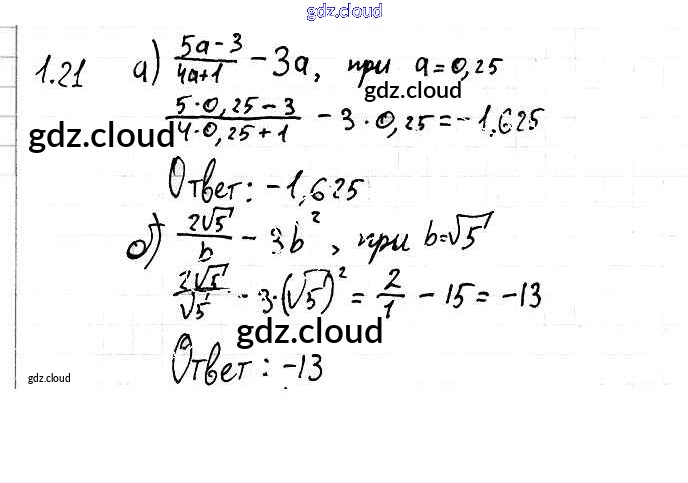 gdz.cloud
1.21 а) (5a-3)/(4a+1) - 3a, при a=0,25
gdz.cloud
(5·0,25-3)/(4·0,25+1) - 3·0,25 = -1,625
gdz.cloud
Ответ: -1,625
б) 2√5/b - 3b², при b=√5
2√5/√5 - 3·(√5)² = 2/1 - 15 = -13
gdz.cloud
Ответ: -13
gdz.cloud